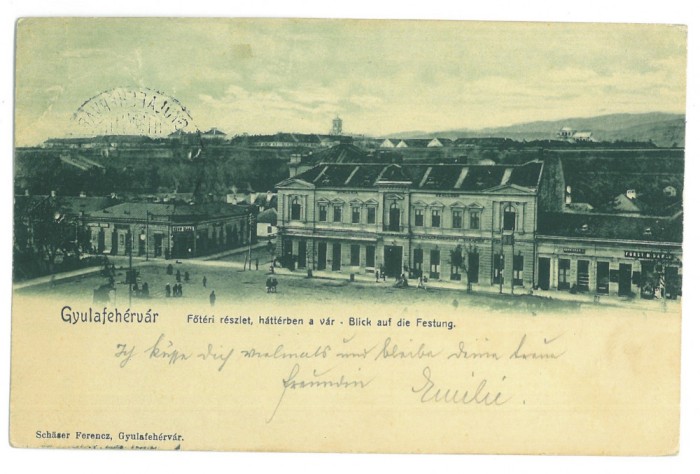 GYULAFEHÉRVÁR
FÜRST M.
Gyulafehérvár
Főtéri részlet, háttérben a vár · Blick auf die Festung.
Ich küsse dich vielmals und bleibe deine treue
Freundin Emilie.
Schäser Ferencz, Gyulafehérvár.